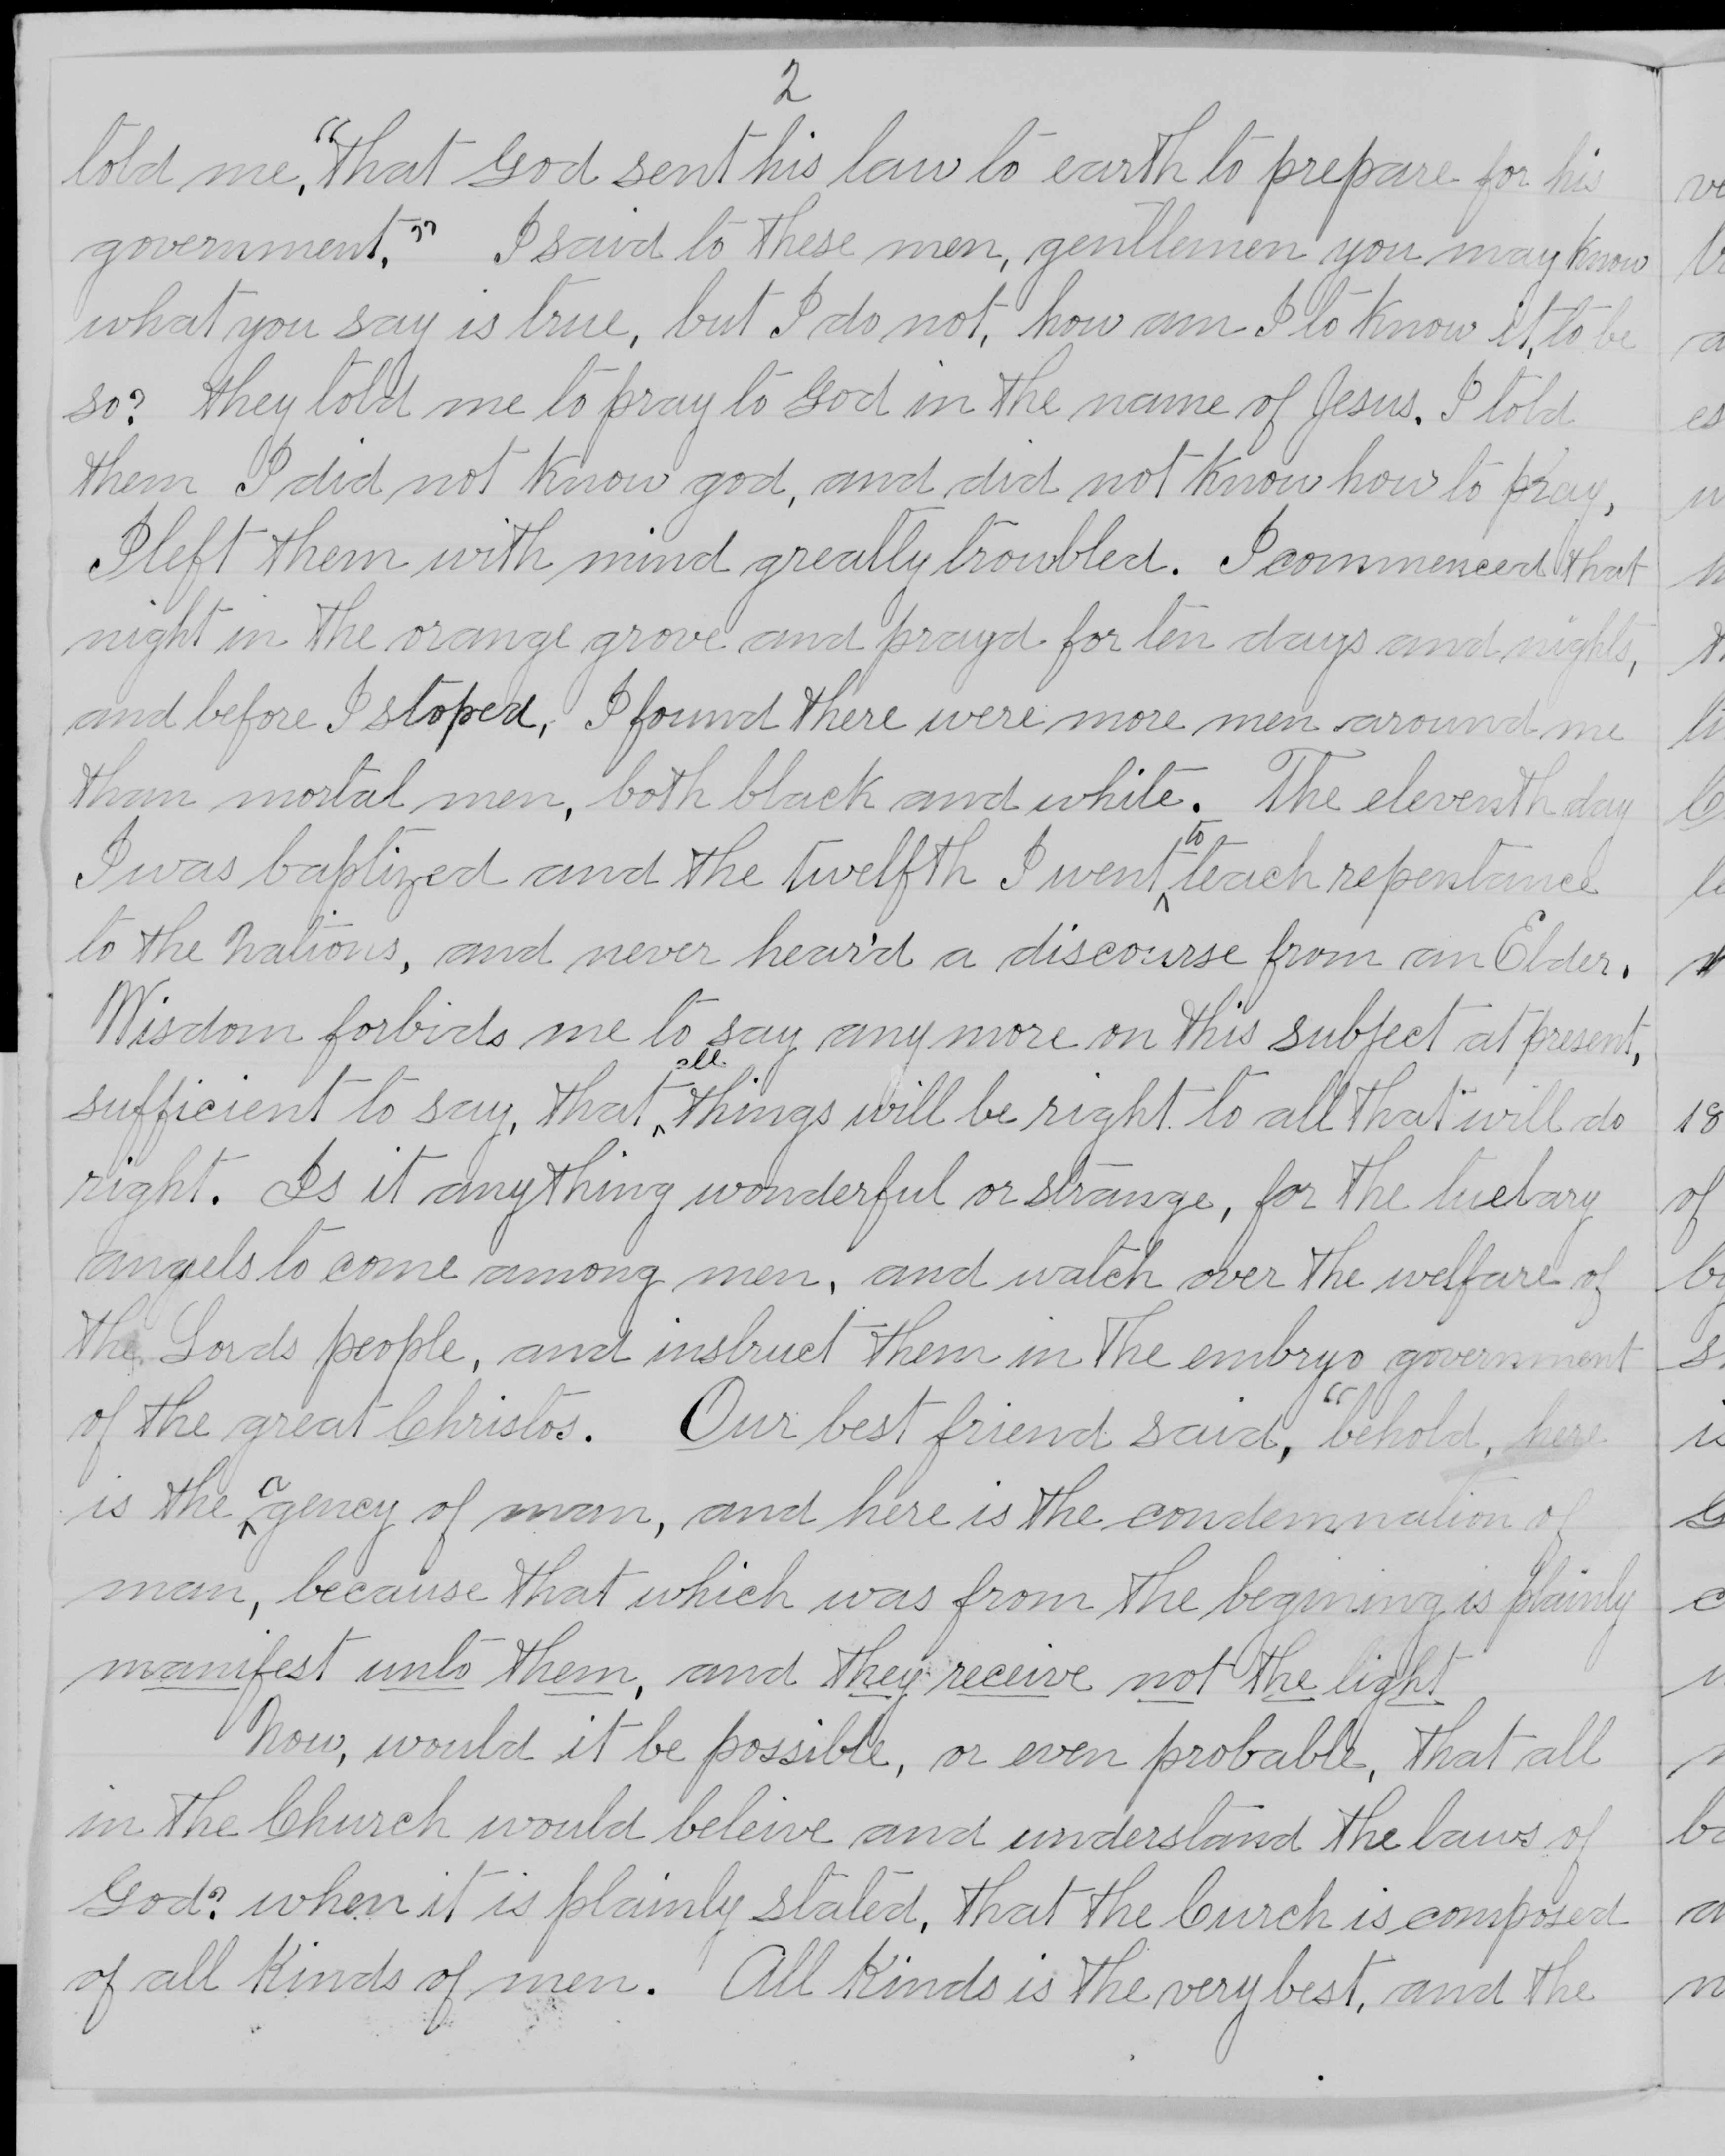 2
told me, "that God sent his law to earth to prepare for his
government," I said to these men, gentlemen you may know
what you say is true, but I do not, how am I to know it, to be
so? they told me to pray to God in the name of Jesus. I told
them I did not know god, and did not know how to pray,
I left them with mind greatly troubled. I commenced that
night in the orange grove and prayd for ten days and nights,
and before I stoped, I found there were more men around me
than mortal men, both black and white. The eleventh day
I was baptized and the twelfth I went ^to teach repentance
to the Nations, and never hear'd a discourse from an Elder.
Wisdom forbids me to say any more on this subject at present,
sufficient to say, that ^all things will be right to all that will do
right. Is it anything wonderful or strange, for the tuelary
angels to come among men, and watch over the welfare of
the Lords people, and instruct them in the embryo government
of the great Christos. Our best friend said, "behold, here
is the ^agency of man, and here is the condemnation of
man, because that which was from the begining is plainly
manifest unto them, and they receive not the light
Now, would it be possible, or even probable, that all
in the Church would beleive and understand the laws of
God? when it is plainly stated, that the Curch is composed
of all kinds of men. All kinds is the very best, and the
18
of